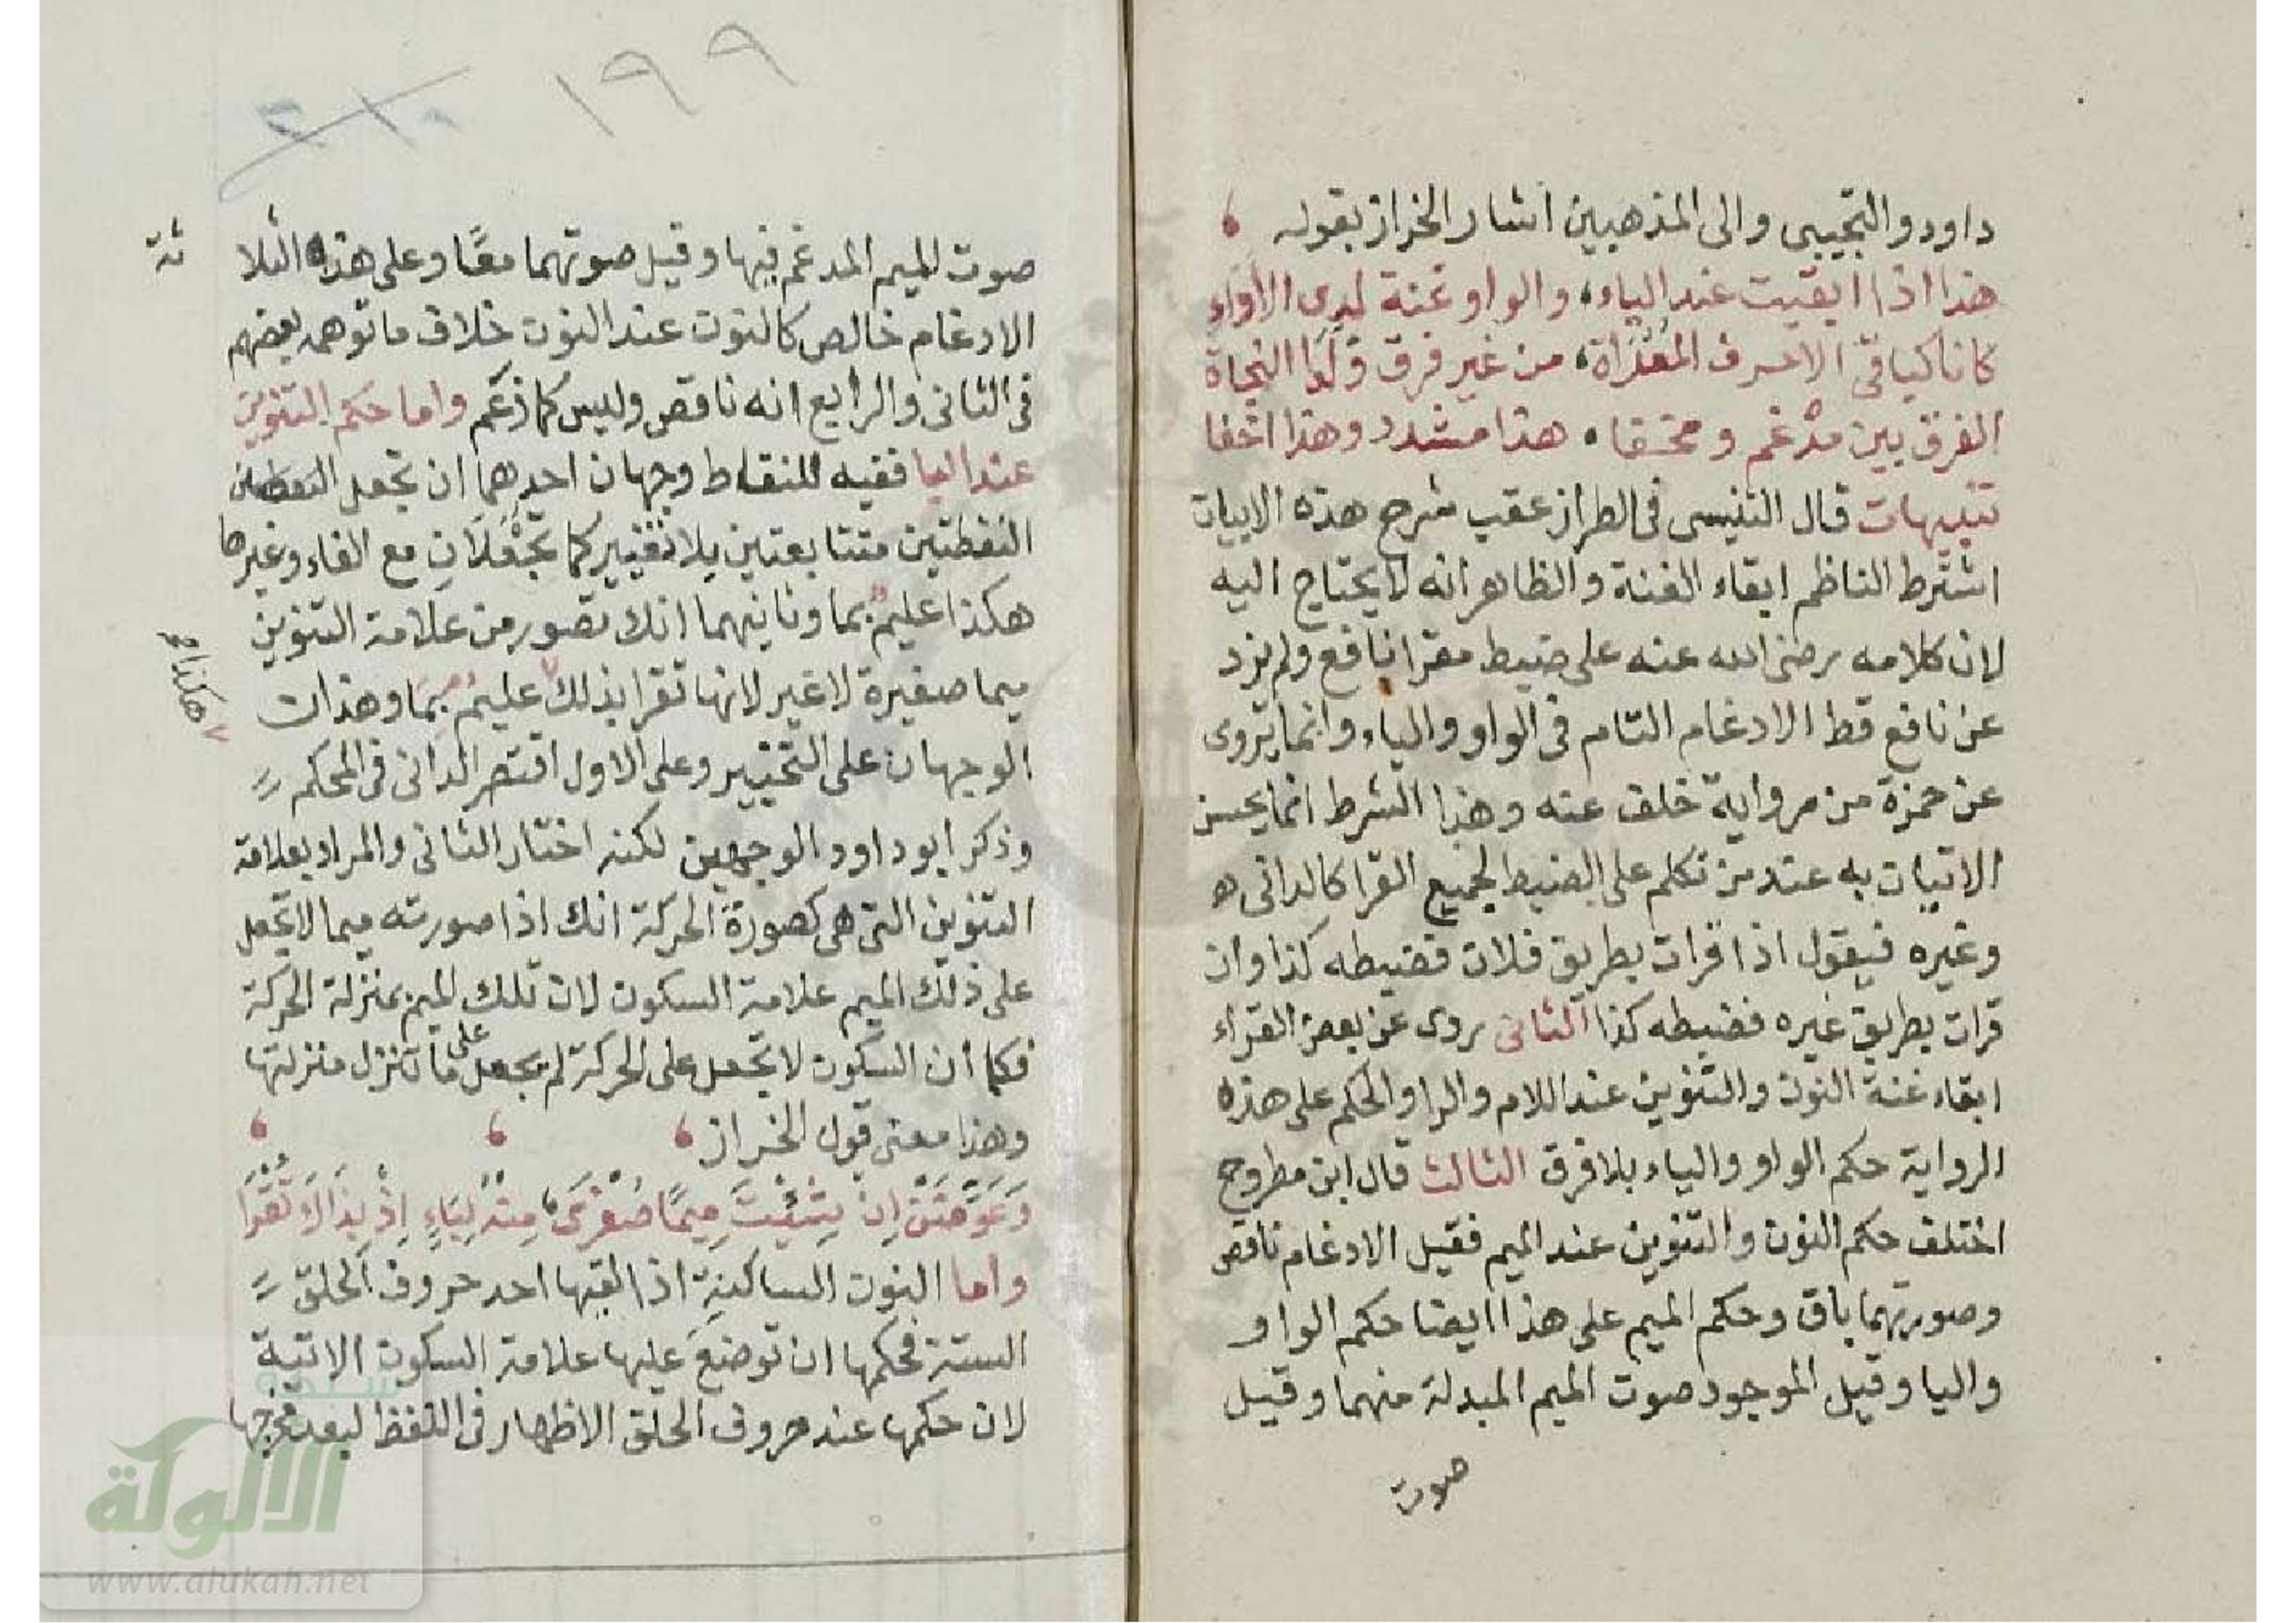 داود والتجيبى والى المذهبين اشار الخراز بقوله
هذا اذا ابقيت عند الياء، والواو غنة لدى الاداء
كانا كباقى الاحرف المقراة، من غير فرق
الفرق بين مدغم ومخففا، هذا مشدد وهذا اخفا
تنبيهات قال التنيسى فى الطراز عقب شرح هذه الابيات
اشترط الناظم ابقاء الغنة والظاهر انه لا يحتاج اليه
لان كلامه رضى الله عنه على ضبط مقرا نافع ولم يرد
عن نافع قط الادغام التام فى الواو والياء وانما يروى
عن حمزة من رواية خلف عنه وهذا الشرط انما يحسن
الاتيان به عند من تكلم على الضبط لجميع القرا كالدانى
وغيره فيقول اذا قرات بطريق فلان فضبطه كذا وان
قرات بطريق غيره فضبطه كذا الثانى روى عن بعض القراء
ابقاء غنة النون والتنوين عند اللام والرا والحكم على هذه
الرواية حكم الواو والياء بلا فرق الثالث قال ابن مطروح
اختلف حكم النون والتنوين عند الميم فقيل الادغام ناقص
وصورتهما باق وحكم الميم على هذا ايضا حكم الواو
واليا وقيل الموجود صوت الميم المبدلة منهما وقيل
صوت
١٩٩
صوت الميم المدغم فيها وقيل صوتهما معًا وعلى هذه الثلا
ثة
الادغام خالص كالنون عند النون خلاف ما توهمه بعضهم
فى الثانى والرابع انه ناقص وليس كما زعم واما حكم التنوين
عند البا ففيه للنقاط وجهان احدهما ان تجعل
النقطتين متتابعتين بلا تغيير كما تجعلان مع الفاء وغيرها
هكذا عليم بما وثانيهما انك تصور من علامة التنوين
ميما صغيرة لا غير لانها تقرا بذلك عليم بما وهذان
هكذا
الوجهان على التخيير وعلى الاول اقتصر الدانى فى المحكم
وذكر ابو داود الوجهين لكنه اختار الثانى والمراد بعلامة
التنوين التى هى كصورة الحركة انك اذا صورته ميما لا تجعل
على ذلك الميم علامة السكون لان تلك الميم بمنزلة الحركة
فكما أن السكون لا تجعل على الحركة لم يجعل على ما تنزل منزلتها
وهذا معنى قول الخراز
وَعَوِّضَنْ إِن شِئْتَ مِيمًا صُغْرَى، مِنْهُ لِبَاءٍ إِذْ بِذَاكَ تُقْرَا
واما النون الساكنة اذا لقيها احد حروف الحلق
الستة فحكمها ان توضع عليها علامة السكون الاتية
لان حكمها عند حروف الحلق الاظهار فى اللفظ لبعد مخرجها
شبكة
الألوكة
www.alukah.net